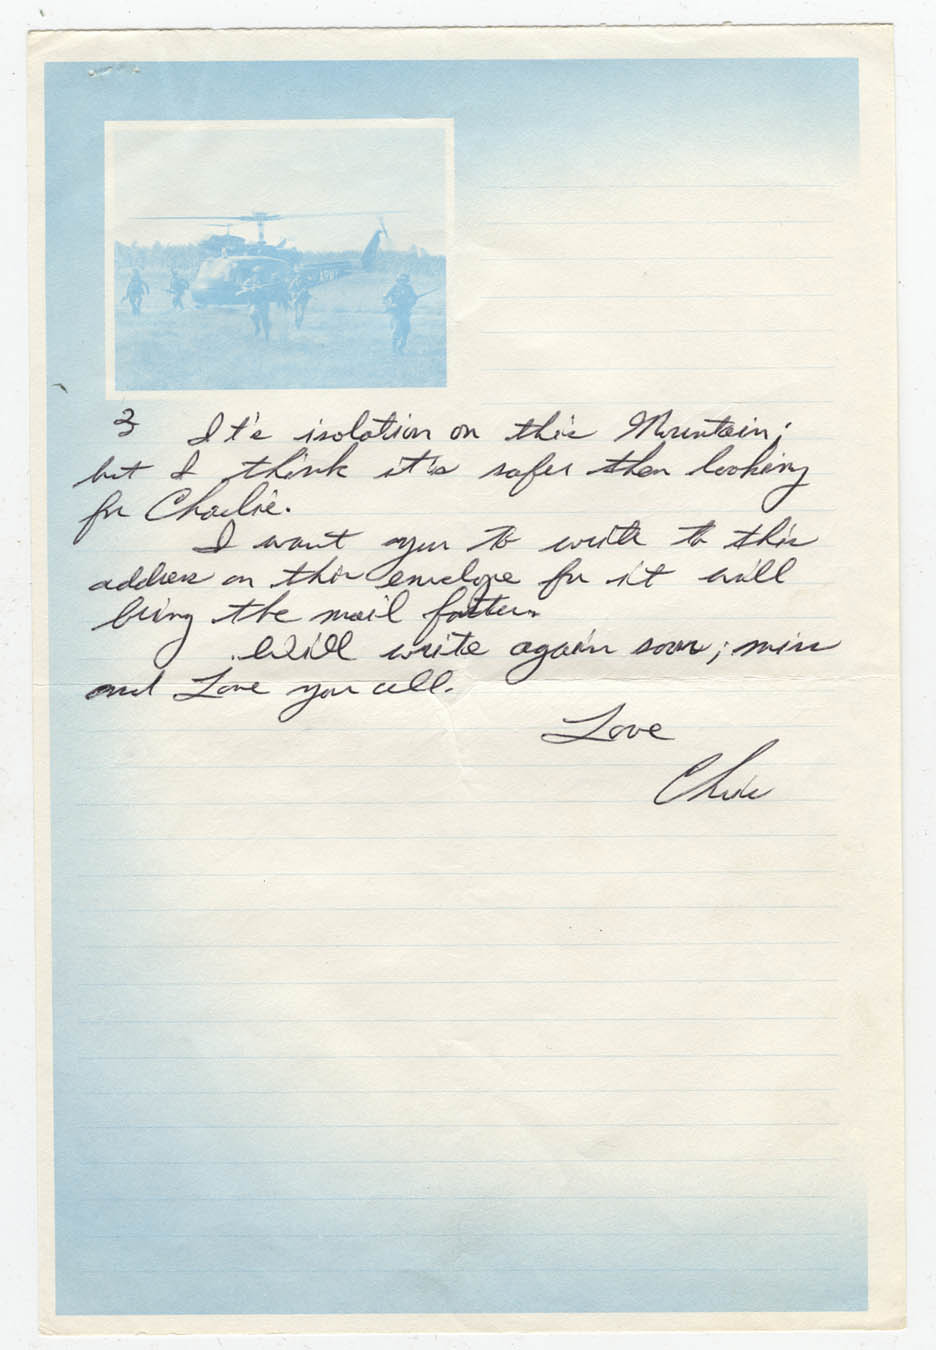 ARMY
3 It's isolation on this Mountain;
but I think it's safer then looking
for Charlie.
I want you to write to this
address on this envelope for it will
bring the mail faster.
Will write again soon; miss
and Love you all.
Love